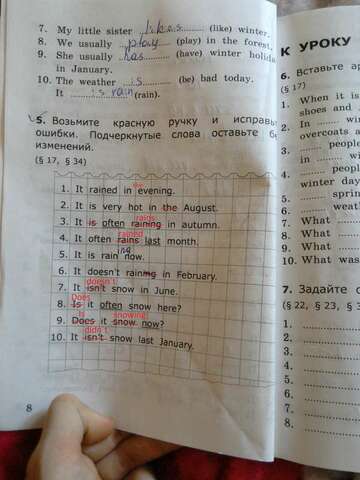 7. My little sister likes (like) winter.
8. We usually play (play) in the forest.
9. She usually has (have) winter holida
in January.
10. The weather is (be) bad today.
It is rain (rain).
5. Возьмите красную ручку и исправь
ошибки. Подчеркнутые слова оставьте бе
изменений.
(§ 17, § 34)
1. It rained in evening.
2. It is very hot in the August.
rains
3. It is often raining in autumn.
rained
4. It often rains last month.
ing
5. It is rain now.
6. It doesn't raining in February.
doesn't
7. It isn't snow in June.
Does
8. Is it often snow here?
Is snowing
9. Does it snow now?
didn't
10. It isn't snow last January.
8
К УРОКУ
6. Вставьте ар
(§ 17)
1. When it is
shoes and
2. In win
overcoats a
3. people
in w
4. people
winter day
5. sprin
6. weat
7. What
8. What
9. What
10. What
7. Задайте
(§ 22, § 23, § 3
1.
2.
3.
4.
5.
6.
7.
8.